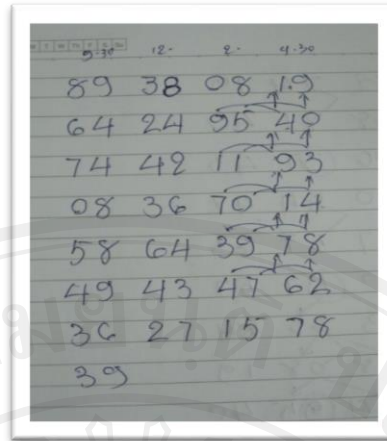 9-30 12- 2- 4-30
89 38 08 19
64 24 95 40
74 42 11 93
08 36 70 14
58 64 39 78
49 43 47 62
36 27 15 78
39